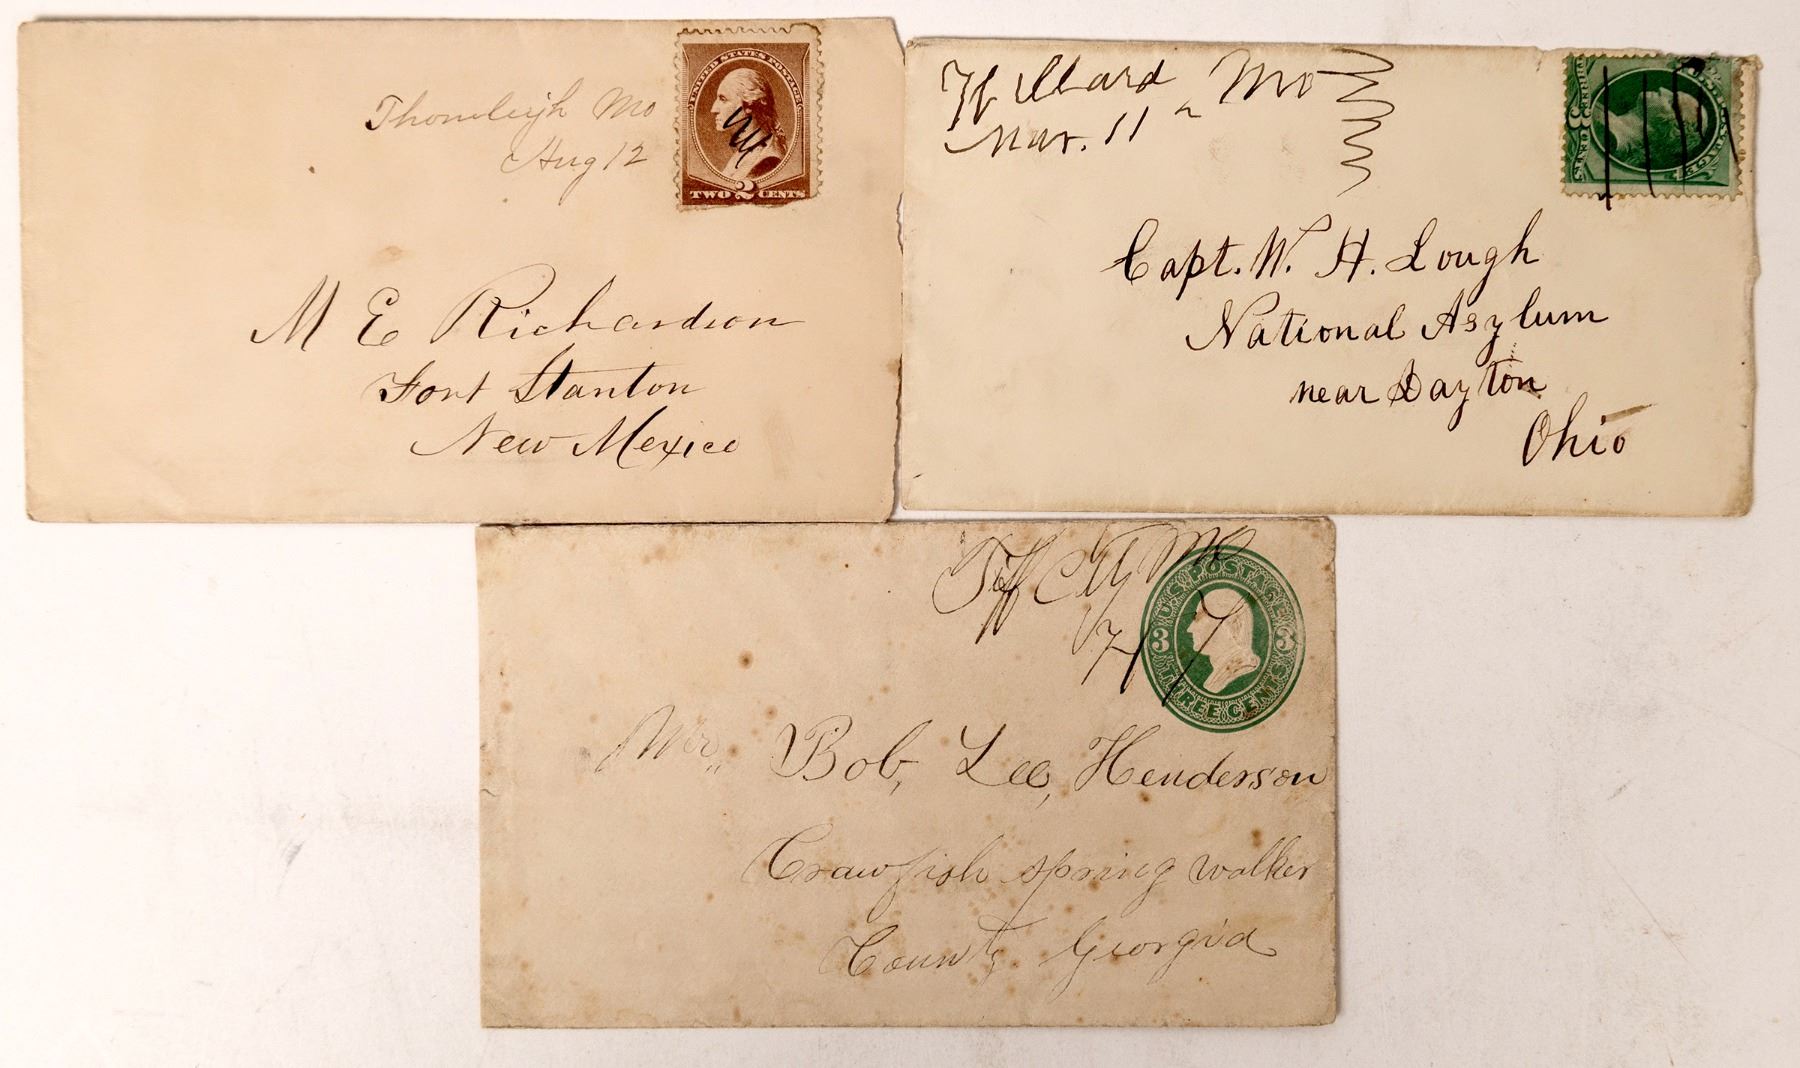 Thornleigh Mo
Aug 12
UNITED STATES POSTAGE
TWO 2 CENTS
M E Richardson
Fort Stanton
New Mexico
Willard Mo
Mar. 11
Capt. W. H. Lough
National Asylum
near Dayton
Ohio
Tiff City Mo
U.S. POSTAGE
3 3
THREE CENTS
Mr,, Bob, Lee, Henderson
Crawfish spring walker
County Georgia